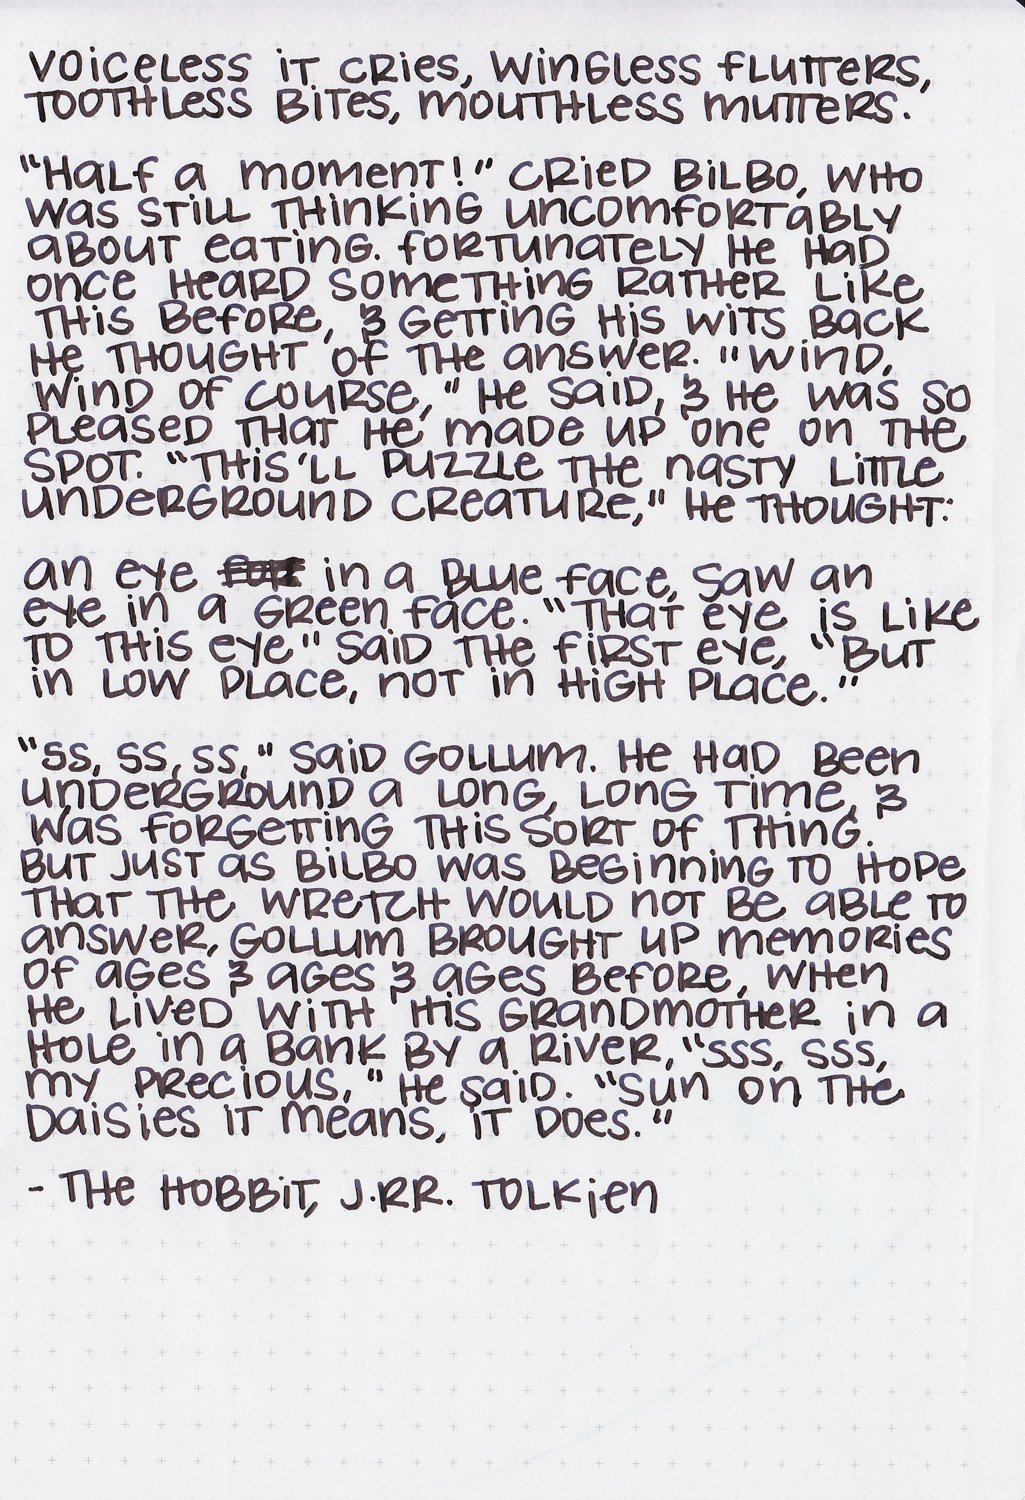 Voiceless it cries, wingless flutters,
toothless bites, mouthless mutters.
"Half a moment!" cried Bilbo, who
was still thinking uncomfortably
about eating. Fortunately he had
once heard something rather like
this before, & getting his wits back
he thought of the answer. "Wind,
wind of course," he said, & he was so
pleased that he made up one on the
spot. "This'll puzzle the nasty little
underground creature," he thought:
an eye in a blue face, saw an
eye in a green face. "That eye is like
to this eye" said the first eye, "But
in low place, not in high place."
"Ss, ss, ss," said Gollum. He had been
underground a long, long time, &
was forgetting this sort of thing.
But just as Bilbo was beginning to hope
that the wretch would not be able to
answer, Gollum brought up memories
of ages & ages & ages before, when
he lived with his grandmother in a
hole in a bank by a river, "Sss, sss,
my precious," he said. "Sun on the
daisies it means, it does."
- The Hobbit, J.R.R. Tolkien